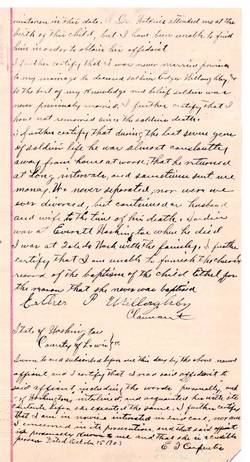 in this date. A Dr. attended me at the
birth of this child, but I have been unable to find
him in order to obtain his affidavit
I further certify that I was never married previous
to my marriage to deceased soldier Edgar Willoughby &
to the best of my knowledge and belief soldier was
never previously married. I further certify that I
have not remarried since the soldiers death.
I further certify that during the last seven years
of soldiers life he was almost constantly
away from home at work. That he returned
at long intervals, and sometimes sent me
money. We never seperated, nor were we
ever divorced, but continued as husband
and wife to the time of his death. Soldier
was at Everett Washington when he died
I was at with the family. I further
certify that I am unable to furnish the church
record of the baptism of the child Ethel for
the reason that she never was baptised
Esther P Willoughby
Claimant
State of Washington
County of Lewis } ss
Sworn to and subscribed before me this day by the above named
affiant and I certify that I read said affidavit to
said affiant, including the words
of Washington, interlined, and acquainted her with its
contents before she executed the same. I further certify
that I am in nowise interested in said case, nor am
I concerned in its prosecution, and that said affiant
is personally known to me and that she is a credible
person Dated October 15 1903
E J Carpenter